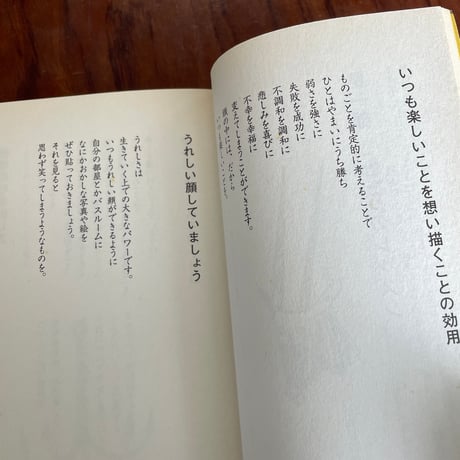 いつも楽しいことを想い描くことの効用
ものごとを肯定的に考えることで
ひとはやまいにうち勝ち
弱さを強さに
失敗を成功に
不調和を調和に
悲しみを喜びに
不幸を幸福に
変えてしまうことができます。
頭の中には、だから
うれしい顔していましょう
うれしさは
生きていく上での大きなパワーです。
いつもうれしい顔ができるように
自分の部屋とかバスルームに
なにかおかしな写真や絵を
ぜひ貼っておきましょう。
それを見ると
思わず笑ってしまうようなものを。